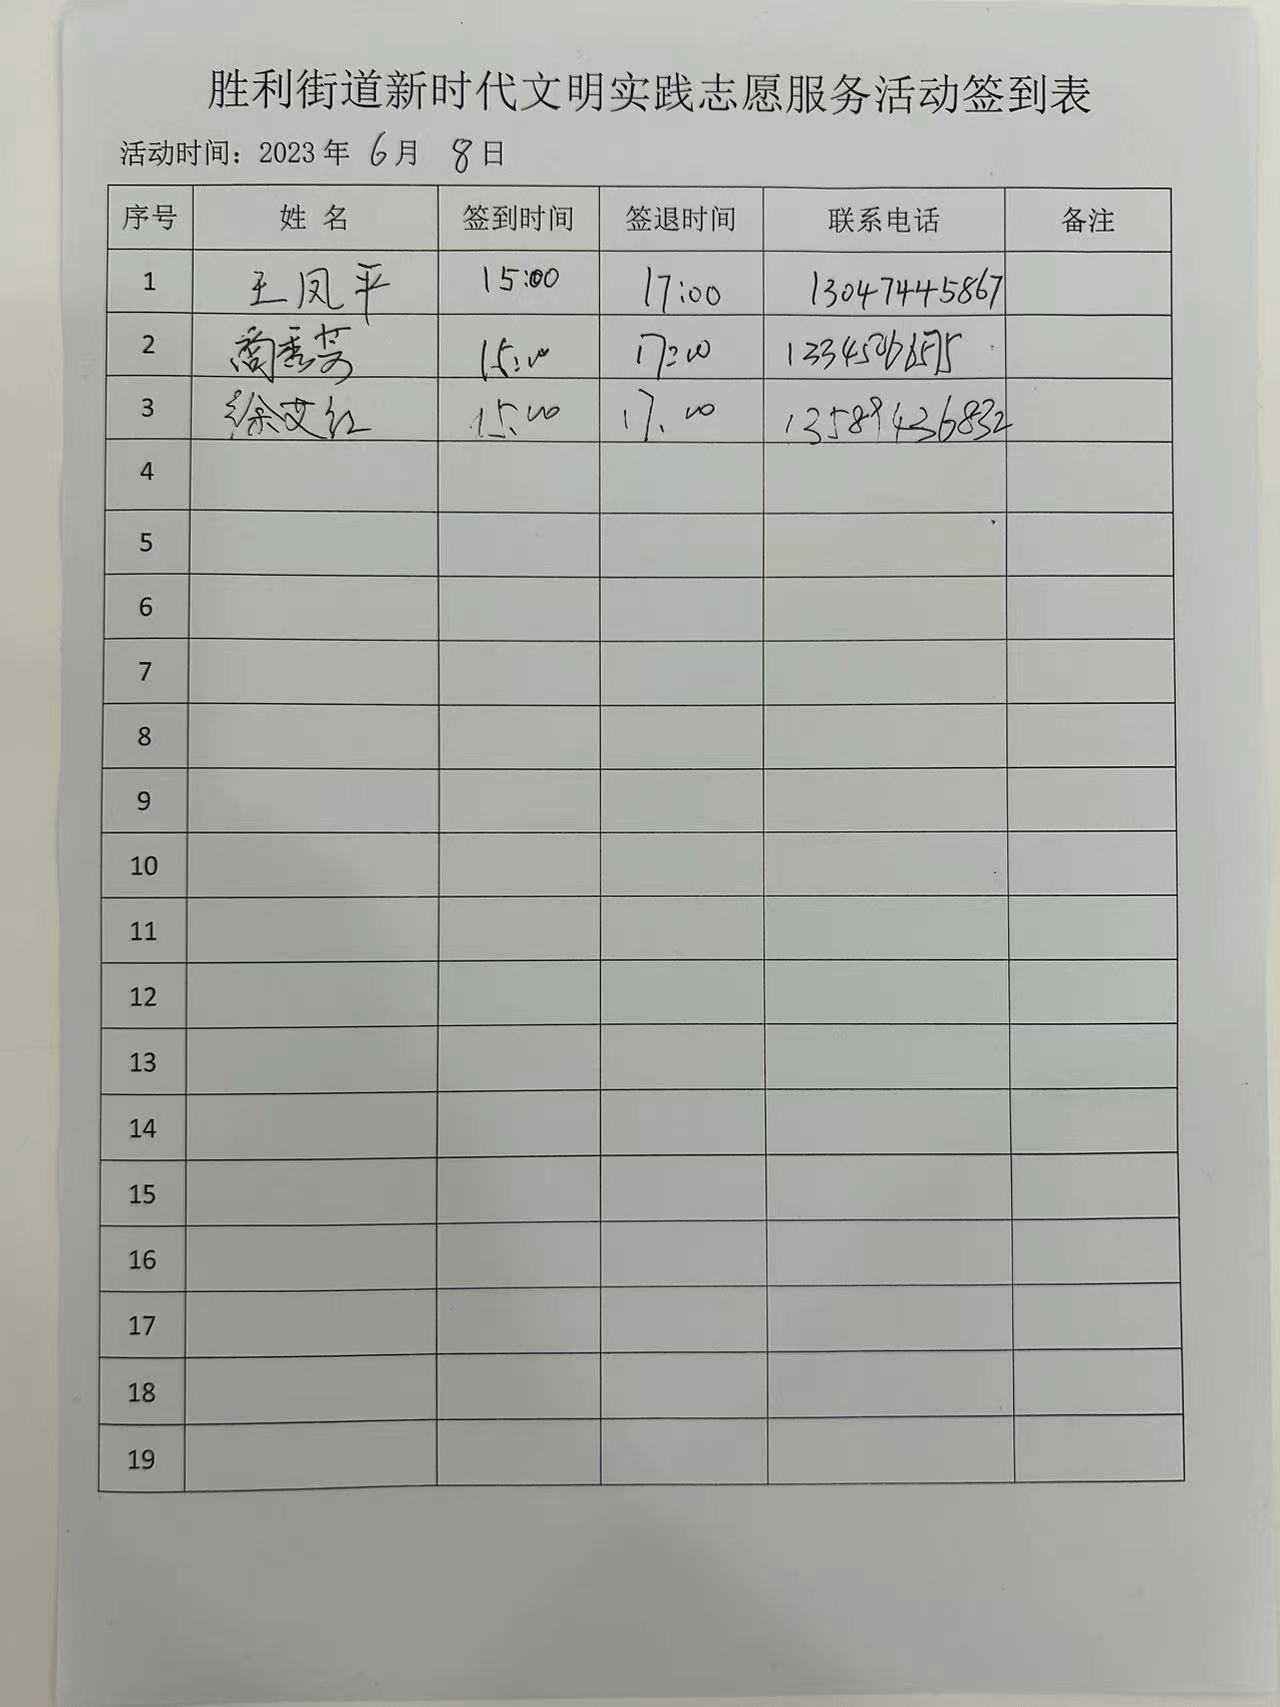 胜利街道新时代文明实践志愿服务活动签到表
活动时间：2023年 6月 8日
序号 姓 名 签到时间 签退时间 联系电话 备注
1 王凤平 15:00 17:00 13047445867
2 15:00 17:00
3 徐艾红 15:00 17:00 13589436832
4
5
6
7
8
9
10
11
12
13
14
15
16
17
18
19